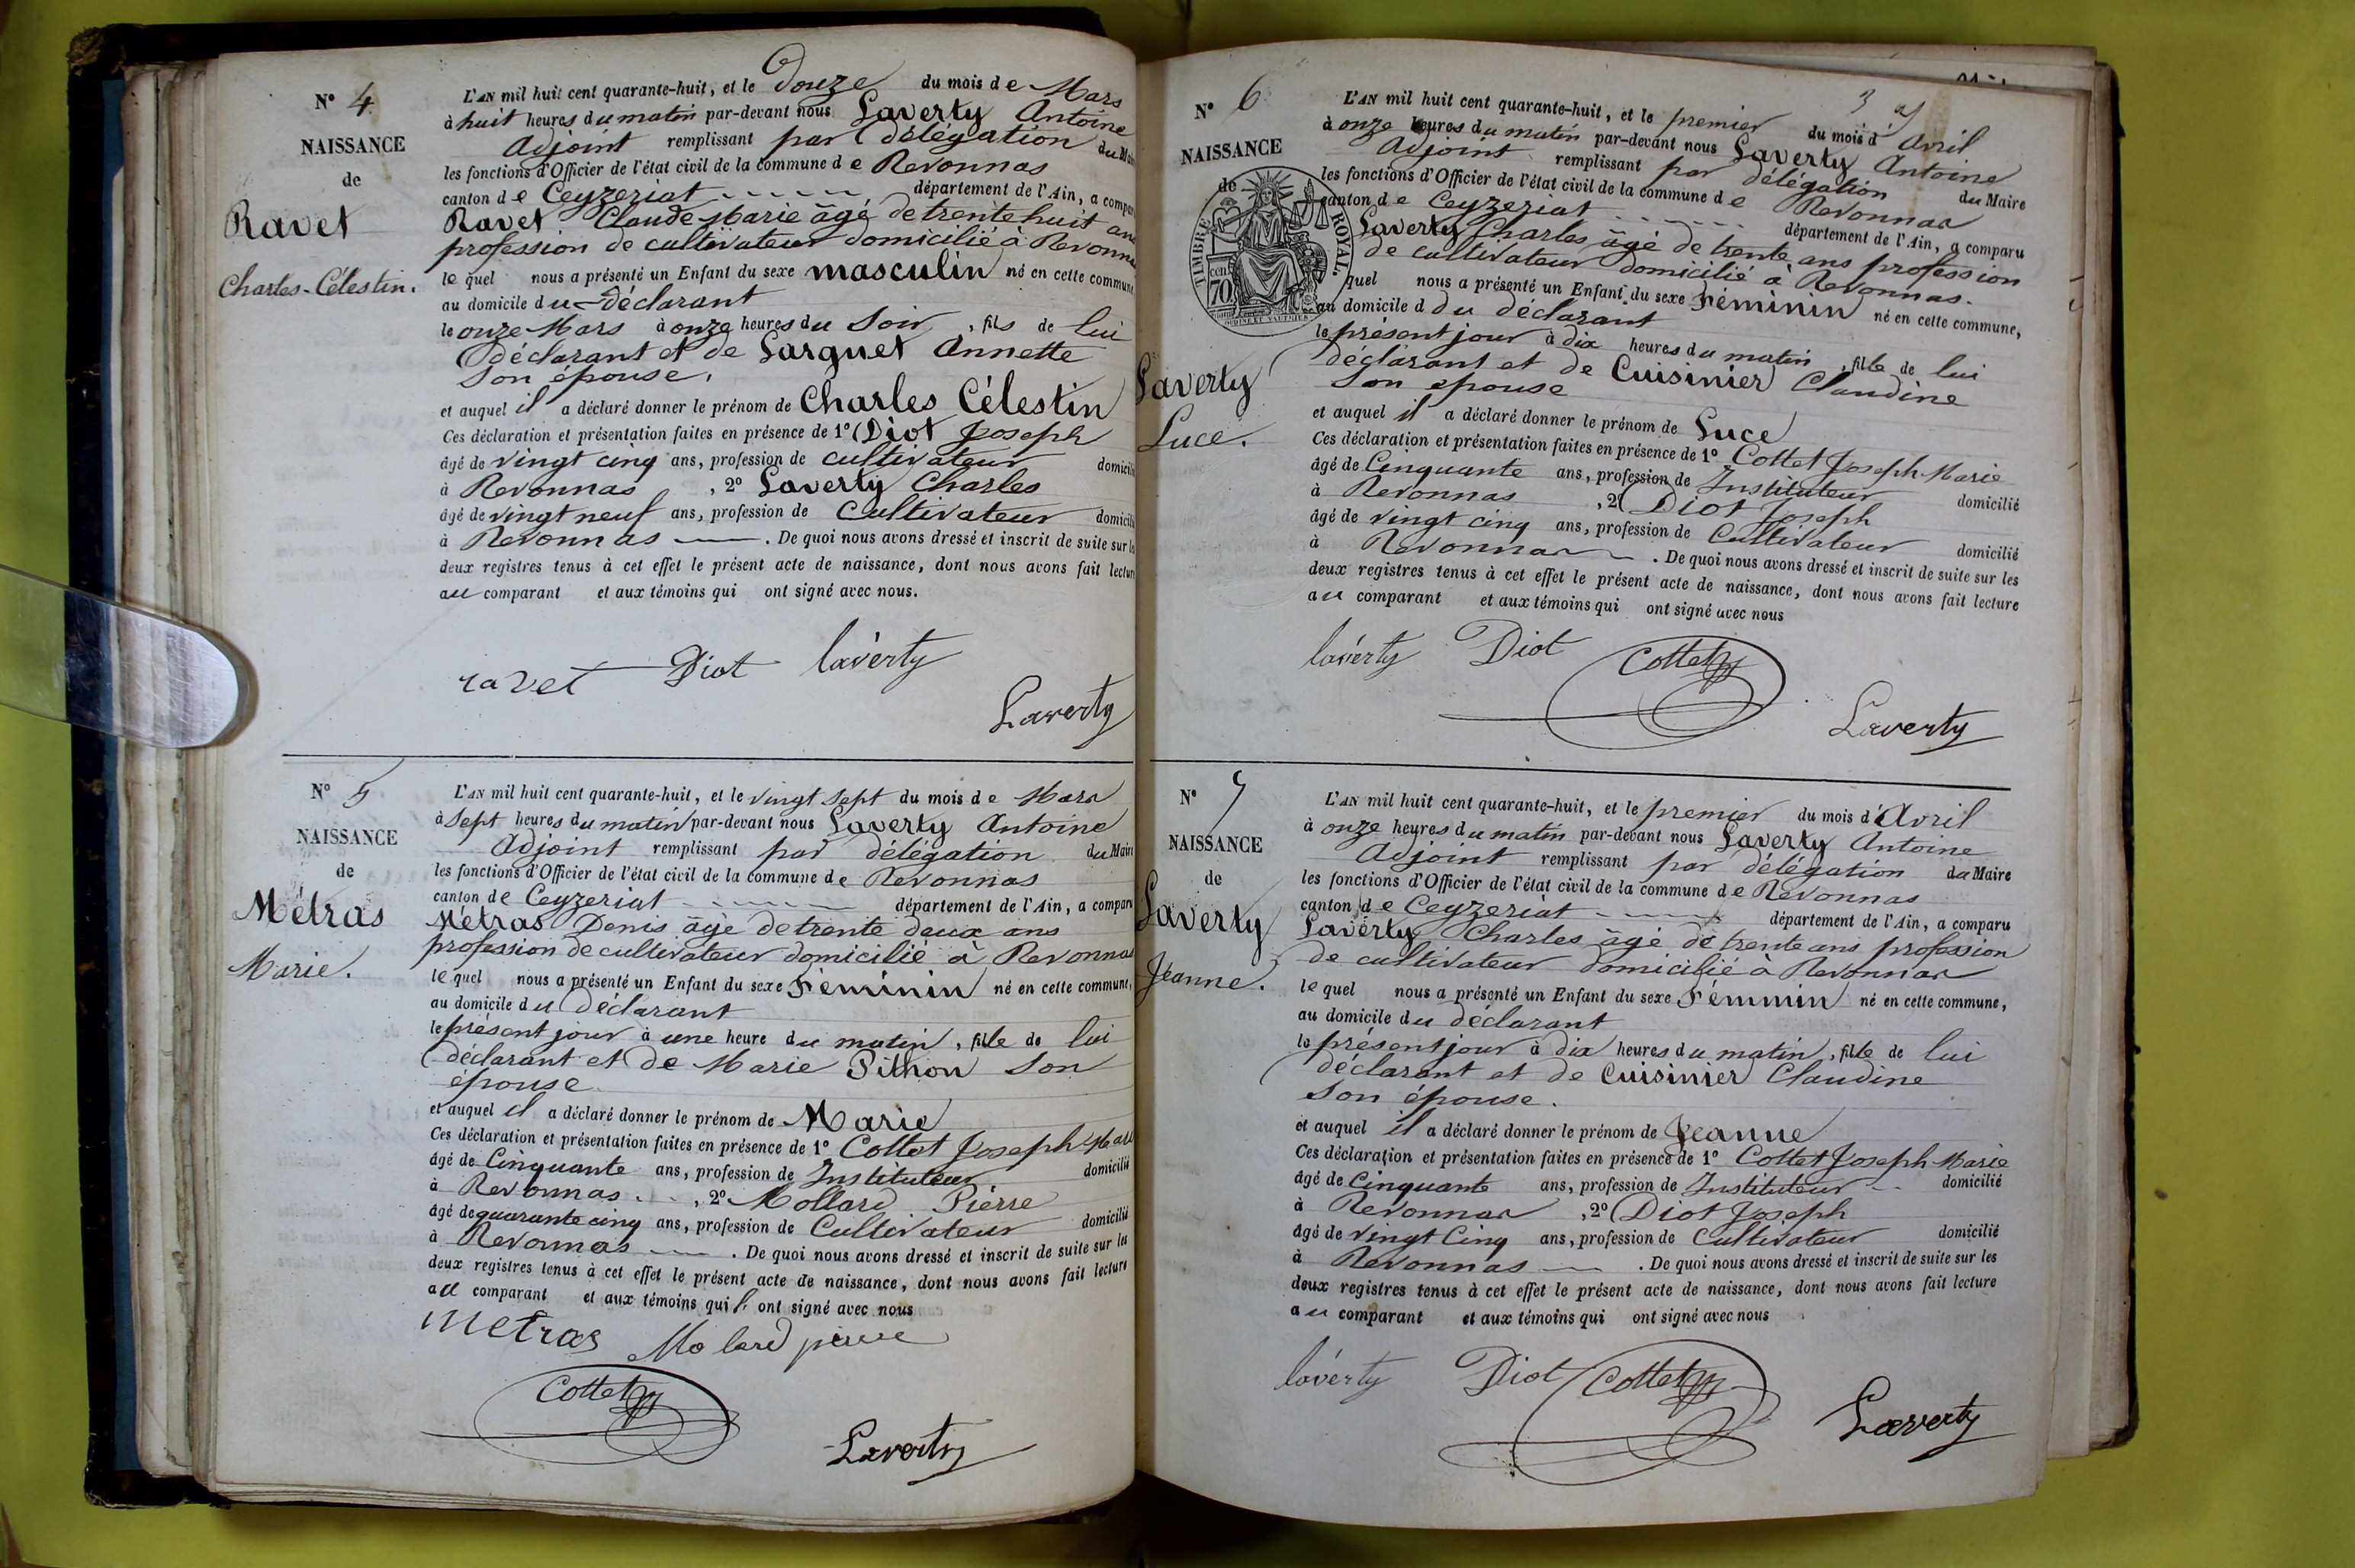 N° 4
NAISSANCE
de
Ravet
Charles-Célestin.
L'AN mil huit cent quarante-huit, et le Douze du mois de Mars
à huit heures du matin par-devant nous Laverty Antoine
Adjoint remplissant par délégation du Mai
les fonctions d'Officier de l'état civil de la commune de Revonnas
canton de Ceyzeriat département de l'Ain, a compar
Ravet Claude Marie âgé de trente huit ans
profession de cultivateur domicilié à Revonna
le quel nous a présenté un Enfant du sexe masculin né en cette commune
au domicile du déclarant
le onze Mars à onze heures du Soir, fils de lui
déclarant et de Larguet Annette
Son épouse.
et auquel il a déclaré donner le prénom de Charles Célestin
Ces déclaration et présentation faites en présence de 1° Diot Joseph
âgé de vingt cinq ans, profession de cultivateur domicili
à Revonnas, 2° Laverty Charles
âgé de vingt neuf ans, profession de Cultivateur domicili
à Revonnas. De quoi nous avons dressé et inscrit de suite sur le
deux registres tenus à cet effet le présent acte de naissance, dont nous avons fait lectur
au comparant et aux témoins qui ont signé avec nous.
ravet Diot lavèrty
Laverty
N° 5
NAISSANCE
de
Métras
Marie.
L'AN mil huit cent quarante-huit, et le vingt sept du mois de Mars
à Sept heures du matin par-devant nous Laverty Antoine
Adjoint remplissant par délégation du Maire
les fonctions d'Officier de l'état civil de la commune de Revonnas
canton de Ceyzeriat département de l'Ain, a comparu
Métras Denis âgé de trente deux ans
profession de cultivateur domicilié à Revonnas
le quel nous a présenté un Enfant du sexe Féminin né en cette commune,
au domicile du déclarant
le présent jour à une heure du matin, fille de lui
déclarant et de Marie Pithon Son
épouse
et auquel il a déclaré donner le prénom de Marie
Ces déclaration et présentation faites en présence de 1° Cottet Joseph Mar
âgé de Cinquante ans, profession de Instituteur domicilié
à Revonnas, 2° Mollard Pierre
âgé de quarante cinq ans, profession de Cultivateur domicilié
à Revonnas. De quoi nous avons dressé et inscrit de suite sur les
deux registres tenus à cet effet le présent acte de naissance, dont nous avons fait lecture
au comparant et aux témoins qui ont signé avec nous
metras Molard pierre
Cottet
Laverty
3
N° 6
NAISSANCE
de
TIMBRE ROYAL.
70 cen
Laverty
Luce.
L'AN mil huit cent quarante-huit, et le premier du mois d'Avril
à onze heures du matin par-devant nous Laverty Antoine
Adjoint remplissant par délégation du Maire
les fonctions d'Officier de l'état civil de la commune de Revonnas
canton de Ceyzeriat département de l'Ain, a comparu
Laverty Charles âgé de trente ans profession
de cultivateur domicilié à Revonnas.
quel nous a présenté un Enfant du sexe Féminin né en cette commune,
au domicile d du déclarant
le présent jour à dix heures du matin, fille de lui
déclarant et de Cuisinier Claudine
Son épouse
et auquel il a déclaré donner le prénom de Luce
Ces déclaration et présentation faites en présence de 1° Cottet Joseph-Marie
âgé de Cinquante ans, profession de Instituteur domicilié
à Revonnas, 2° Diot Joseph
âgé de vingt cinq ans, profession de Cultivateur domicilié
à Revonnas. De quoi nous avons dressé et inscrit de suite sur les
deux registres tenus à cet effet le présent acte de naissance, dont nous avons fait lecture
au comparant et aux témoins qui ont signé avec nous
lavérty Diot Cottet
Laverty
N° 7
NAISSANCE
de
Laverty
Jeanne.
L'AN mil huit cent quarante-huit, et le premier du mois d'Avril
à onze heures du matin par-devant nous Laverty Antoine
Adjoint remplissant par délégation du Maire
les fonctions d'Officier de l'état civil de la commune de Revonnas
canton de Ceyzeriat département de l'Ain, a comparu
Laverty Charles âgé de trente ans profession
de cultivateur domicilié à Revonnas
le quel nous a présenté un Enfant du sexe Féminin né en cette commune,
au domicile du déclarant
le présent jour à dix heures du matin, fille de lui
déclarant et de Cuisinier Claudine
Son épouse.
et auquel il a déclaré donner le prénom de Jeanne
Ces déclaration et présentation faites en présence de 1° Cottet Joseph Marie
âgé de Cinquante ans, profession de Instituteur domicilié
à Revonnas, 2° Diot Joseph
âgé de vingt Cinq ans, profession de Cultivateur domicilié
à Revonnas. De quoi nous avons dressé et inscrit de suite sur les
deux registres tenus à cet effet le présent acte de naissance, dont nous avons fait lecture
au comparant et aux témoins qui ont signé avec nous
lavérty Diot Cottet
Laverty